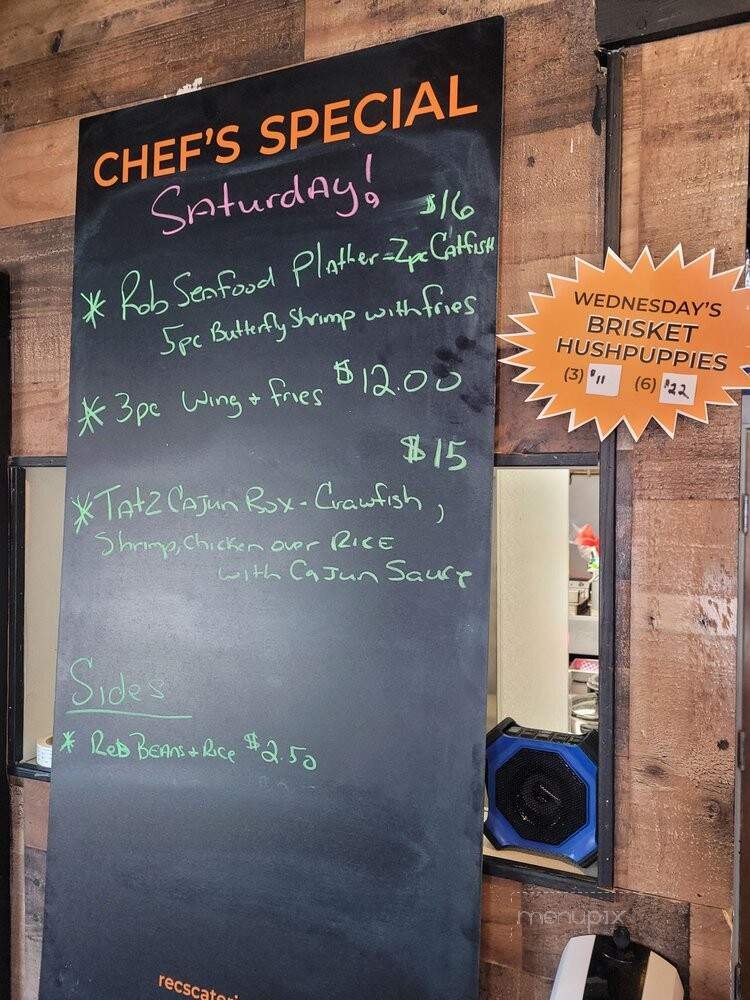 CHEF'S SPECIAL
Saturday!
$16
* Rob Seafood Platter = 2pc Catfish
5pc Butterfly Shrimp with fries
* 3pc Wing + fries $12.00
$15
* Tatz Cajun Box - Crawfish,
Shrimp, Chicken over Rice
with Cajun Sauce
Sides
* Red Beans + Rice $2.50
recscateri
WEDNESDAY'S
BRISKET
HUSHPUPPIES
(3) $11 (6) $22
menupix